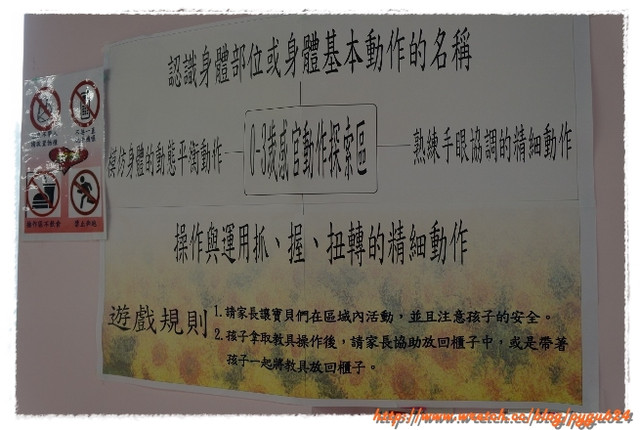 認識身體部位或身體基本動作的名稱
模仿身體的動態平衡動作
0-3歲感官動作探索區
熟練手眼協調的精細動作
操作與運用抓、握、扭轉的精細動作
遊戲規則
1.請家長讓寶貝們在區域內活動，並且注意孩子的安全。
2.孩子拿取教具操作後，請家長協助放回櫃子中，或是帶著
孩子一起將教具放回櫃子。
禁止奔跑